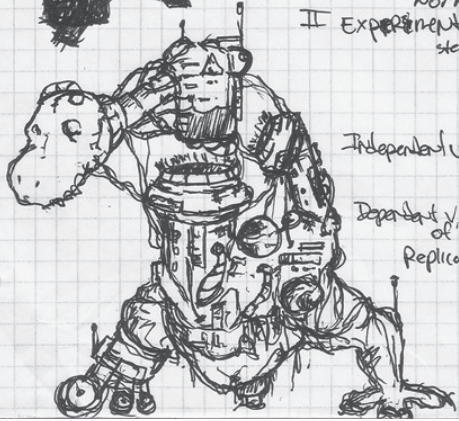 II Experiment
ste
Independent v
Dependent V
of
Replica